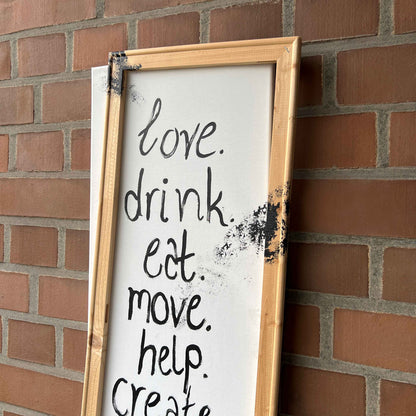 love.
drink.
eat.
move.
help.
create.